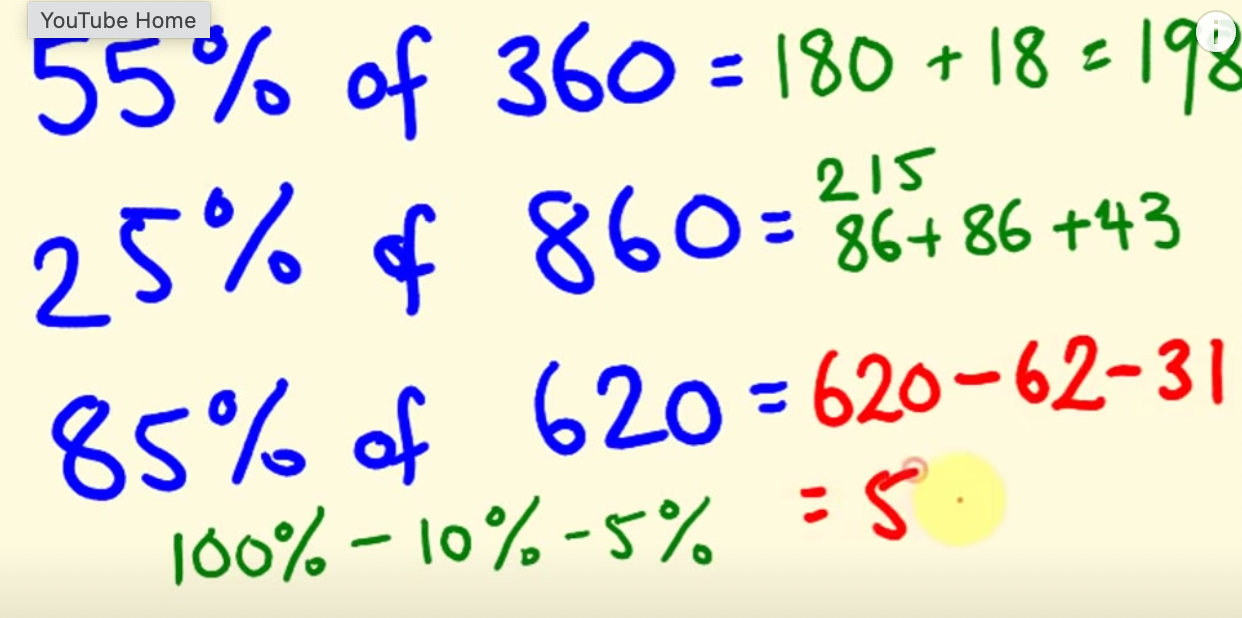 YouTube Home
i
55% of 360 = 180 + 18 = 198
215
25% of 860 = 86 + 86 + 43
85% of 620 = 620 - 62 - 31
= 5
100% - 10% - 5%